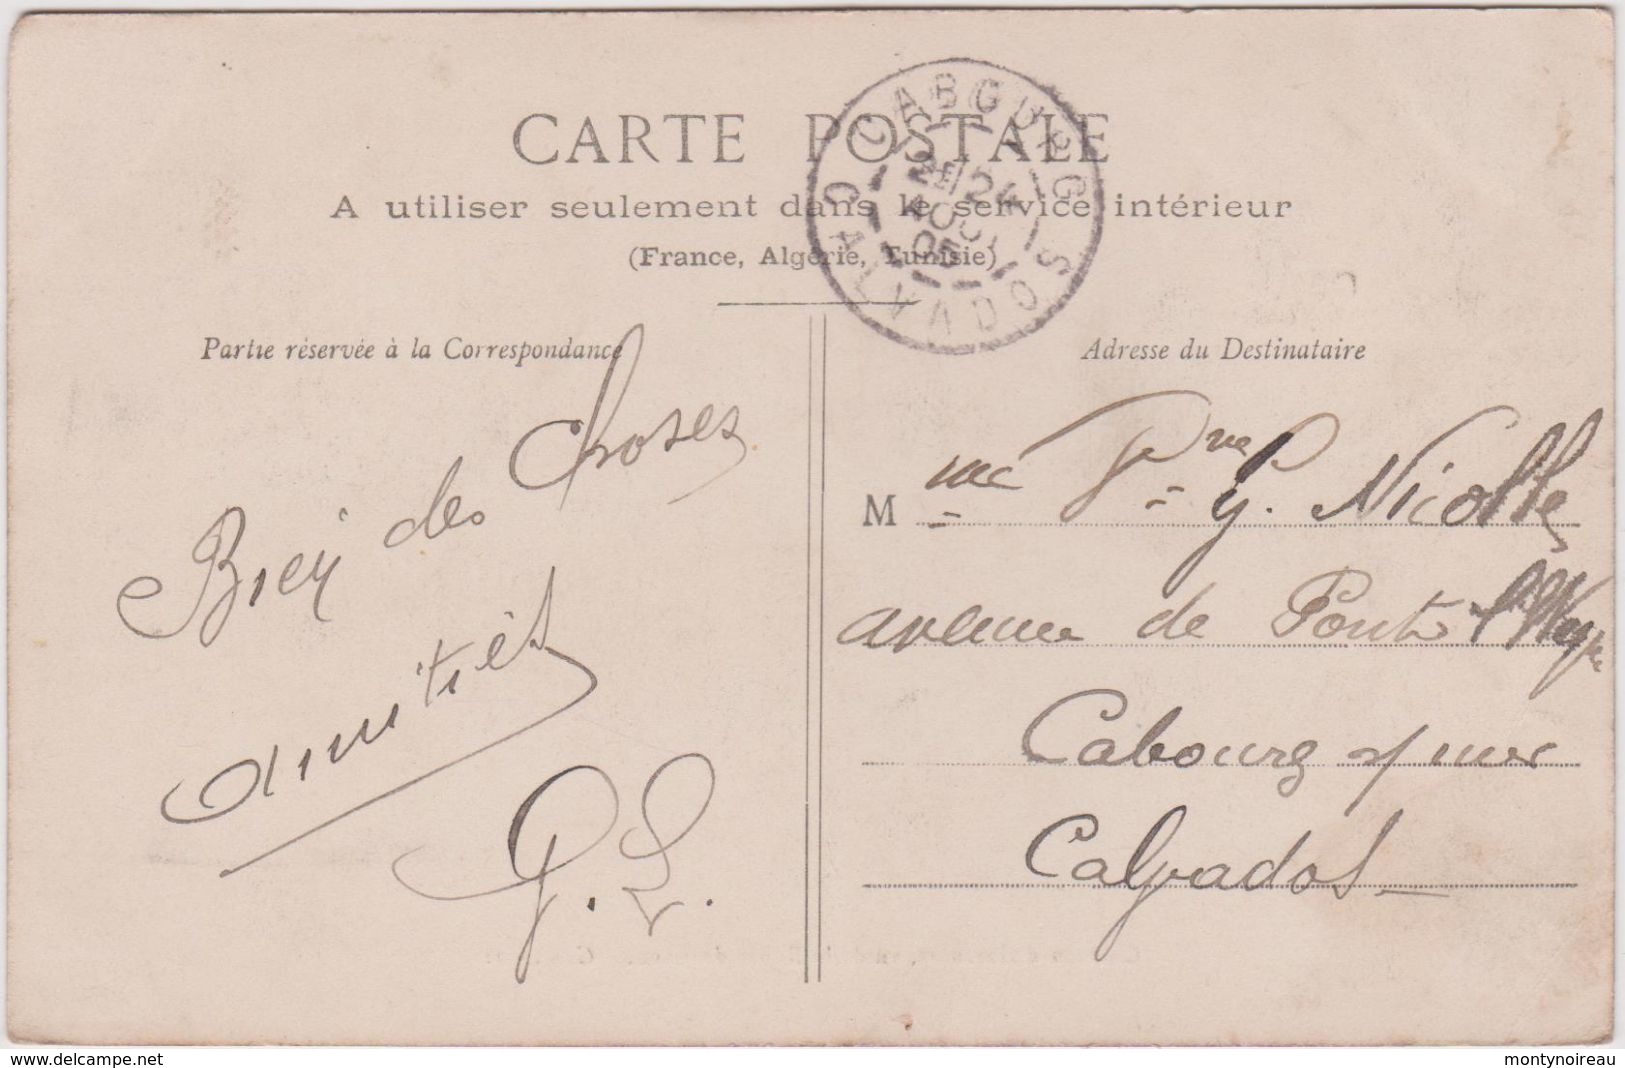 CARTE POSTALE
A utiliser seulement dans le service intérieur
(France, Algérie, Tunisie)
CABOURG
24
05
CALVADOS
Partie réservée à la Correspondance
Bien des Choses
amitiés
G. L.
Adresse du Destinataire
M me Nicolle
avenue de Pont
Cabourg s/ mer
Calvados
www.delcampe.net
montynoireau